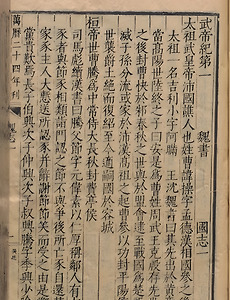 武帝紀第一 魏書 國志一
太祖武皇帝沛國譙人也姓曹諱操字孟德漢相國參之後
太祖一名吉利小字阿瞞 王沈魏書曰其先出於黃帝
當高陽世陸終之子曰安是為曹姓周武王克殷存先世
之後封曹俠於邾春秋之世與於盟會逮至戰國為楚所
滅子孫分流或家於沛漢高祖之起曹參以功封平陽侯
世襲爵土絕而復紹至今適嗣國於容城
桓帝世曹騰為中常侍大長秋封費亭侯
司馬彪續漢書曰騰父節字元偉素以仁厚稱鄰人有亡
豕者與節豕相類詣門認之節不與爭後所亡豕自還其
家豕主人大慙送所認豕并辭謝節節笑而受之由是鄉
黨貴歎焉長子伯興次子仲興次子叔興騰字季興少除
萬曆二十四年刊